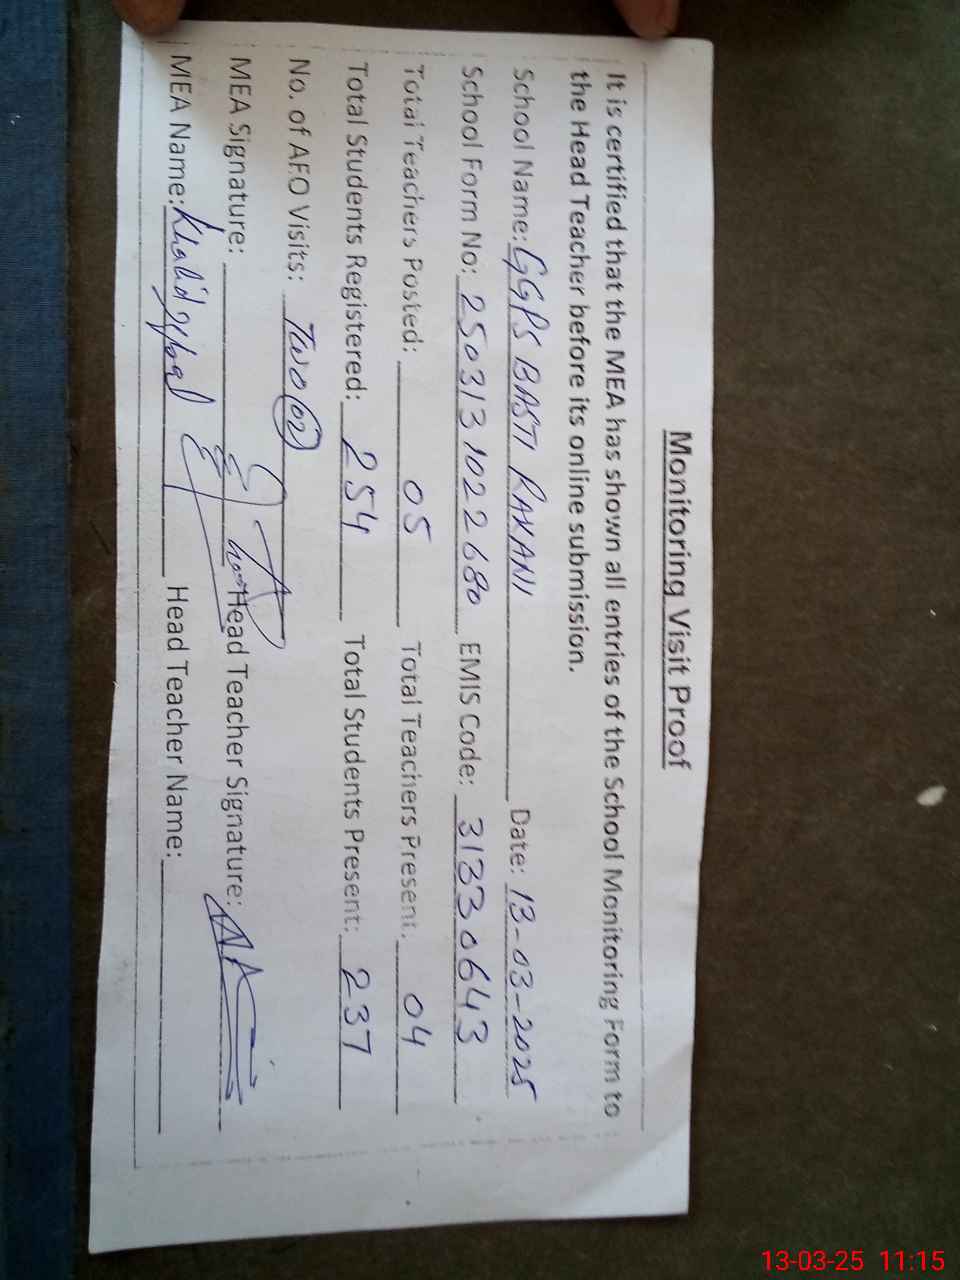 Monitoring Visit Proof
It is certified that the MEA has shown all entries of the School Monitoring Form to
the Head Teacher before its online submission.
School Name: GGPS BASTI RAKANI Date: 13-03-2025
School Form No: 2503131022680 EMIS Code: 31330643
Total Teachers Posted: 05 Total Teachers Present: 04
Total Students Registered: 254 Total Students Present: 237
No. of AEO Visits: Two (02)
MEA Signature: Head Teacher Signature:
MEA Name: Khalid Iqbal Head Teacher Name:
13-03-25 11:15